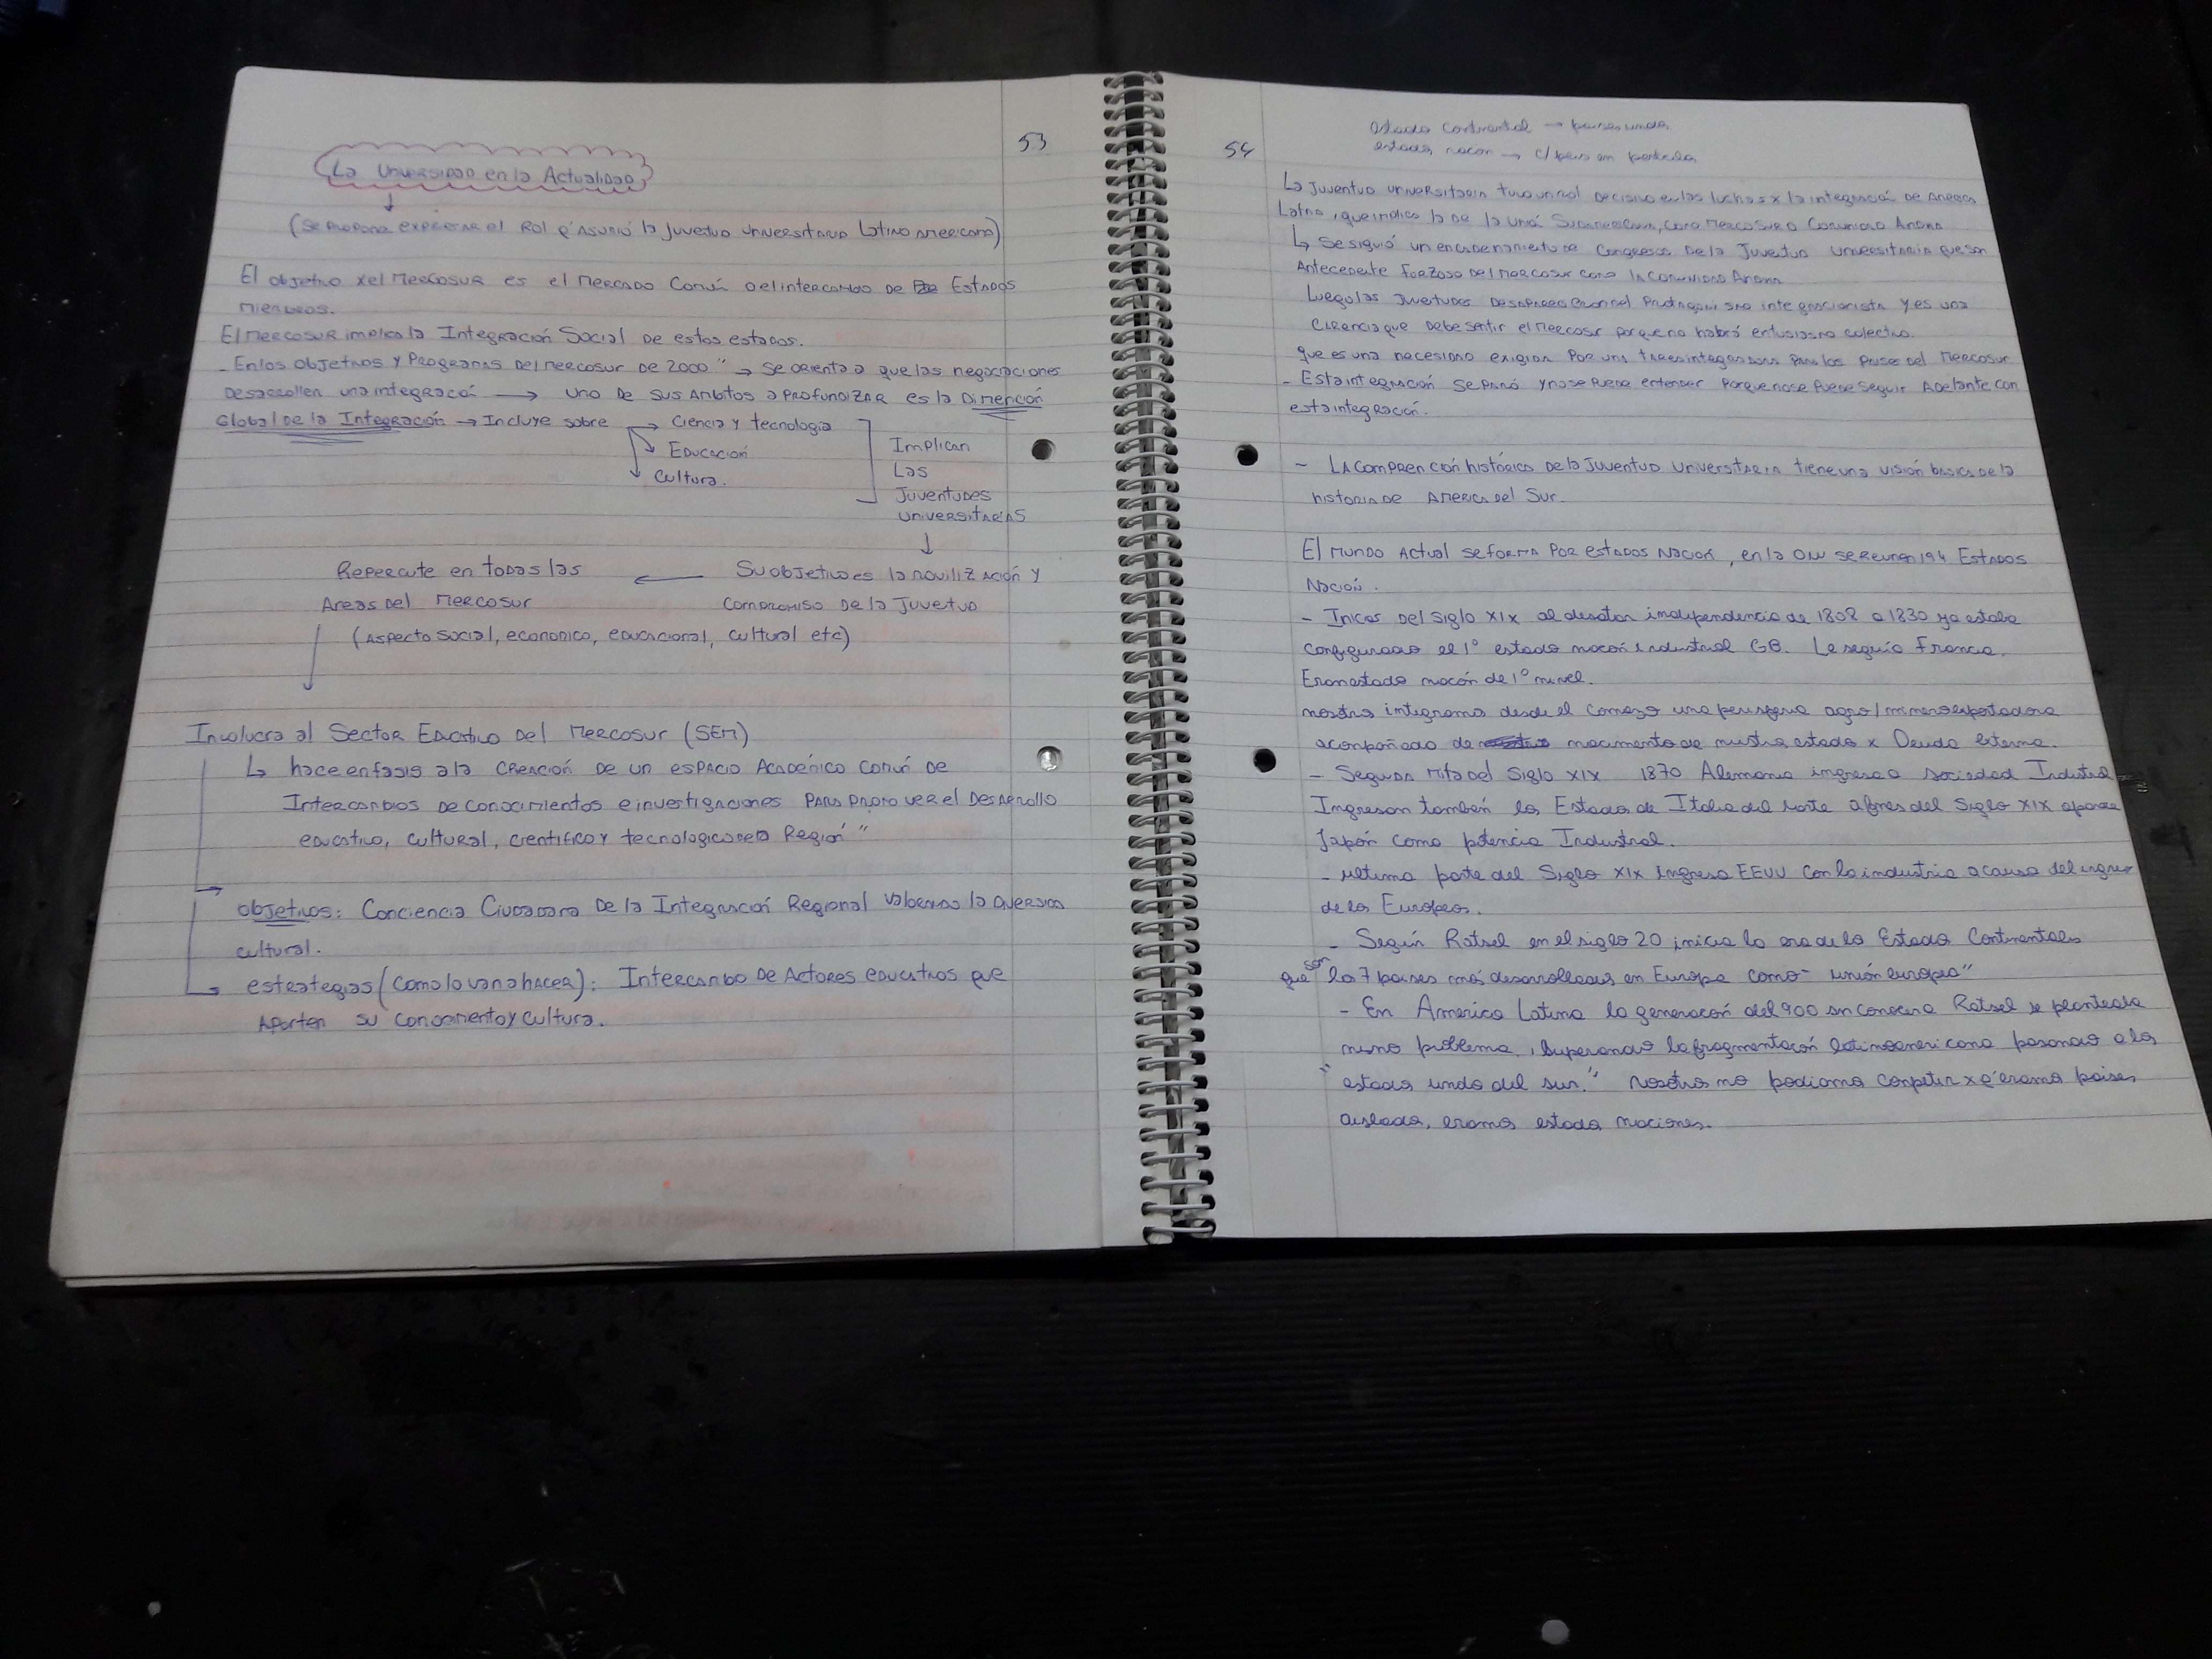 53
La Universidad en la Actualidad
(Se propone expresar el Rol q' asumió la juventud universitaria Latino Americana)
El objetivo x el Mercosur es el Mercado Común o el intercambio de Estados
miembros.
El Mercosur implica la Integración Social de estos estados.
- En los objetivos y Programas Del Mercosur de 2000" → se orienta a que las negociaciones
Desarrollen una integración → uno de sus Ambitos a profundizar es la Dimención
Global De la Integración → Incluye sobre → Ciencia y tecnología
Educación
Cultura.
Implican
Las
Juventudes
universitarias
Repercute en todas las ← Su objetivo es la movilización y
Areas del Mercosur compromiso de la Juventud
(Aspecto social, economico, educacional, cultural etc)
Involucra al Sector Educativo Del Mercosur (SEM)
↳ hace enfasis a la creación de un espacio Académico Común de
Intercambios de conocimientos e investigaciones para promover el Desarrollo
educativo, cultural, científico y tecnologico de la Región"
objetivos: Conciencia Ciudadana De la Integración Regional valorando la diversidad
cultural.
estrategias (como lo van a hacer): Intercambio de Actores educativos que
Aporten su conocimiento y cultura.
54
estado continental → paises unidos
estado nación → c/pais en particular
La juventud universitaria tuvo un rol decisivo en las luchas x la integración de America
Latina, que implica la de la Unión Sudamericana, como Mercosur o Comunidad Andina
↳ Se siguió un encadenamiento de Congresos De la Juventud Universitaria que son
Antecedente forzoso del Mercosur como la Comunidad Andina
Luego las Juventudes desaparecieron del protagonismo integracionista y es una
Carencia que debe sentir el Mercosur porque no habrá entusiasmo colectivo.
que es una necesidad exigida por una tarea integradora para los paises del Mercosur
- Esta integración se paró y no se puede entender porque no se puede seguir Adelante con
esta integración.
- La comprención histórica de la Juventud Universitaria tiene una visión basica de la
historia de America del Sur.
El Mundo Actual se forma por estados Nación, en la ONU se reunen 194 Estados
Nación.
- Inicios Del siglo XIX al desatar independencia de 1808 a 1830 ya estaba
configurado el 1° estado nación industrial GB. Le seguía Francia.
Eran estados nación de 1° nivel.
nosotros integramos desde el comienzo una periferia agro/mineroexportadora
acompañado de nacimiento de nuestros estados x Deuda Externa.
- Segunda Mitad Del Siglo XIX 1870 Alemania ingresa a sociedad Industrial
Ingresan también los Estados de Italia del norte a fines del Siglo XIX aparece
Japón como potencia Industrial.
- ultima parte del Siglo XIX Ingresa EEUU con la industria a causa del ingreso
de los Europeos.
- Según Ratzel en el siglo 20 inicia la era de los Estados Continentales
que son los 7 paises más desarrollados en Europa como "unión europea"
- En America Latina la generación del 900 sin conocer a Ratzel se planteaba
mismo problema, superando la fragmentación latinoamericana pasando a los
"estados unidos del sur." nosotros no podiamos competir x q' eramos paises
aislados, eramos estados naciones.